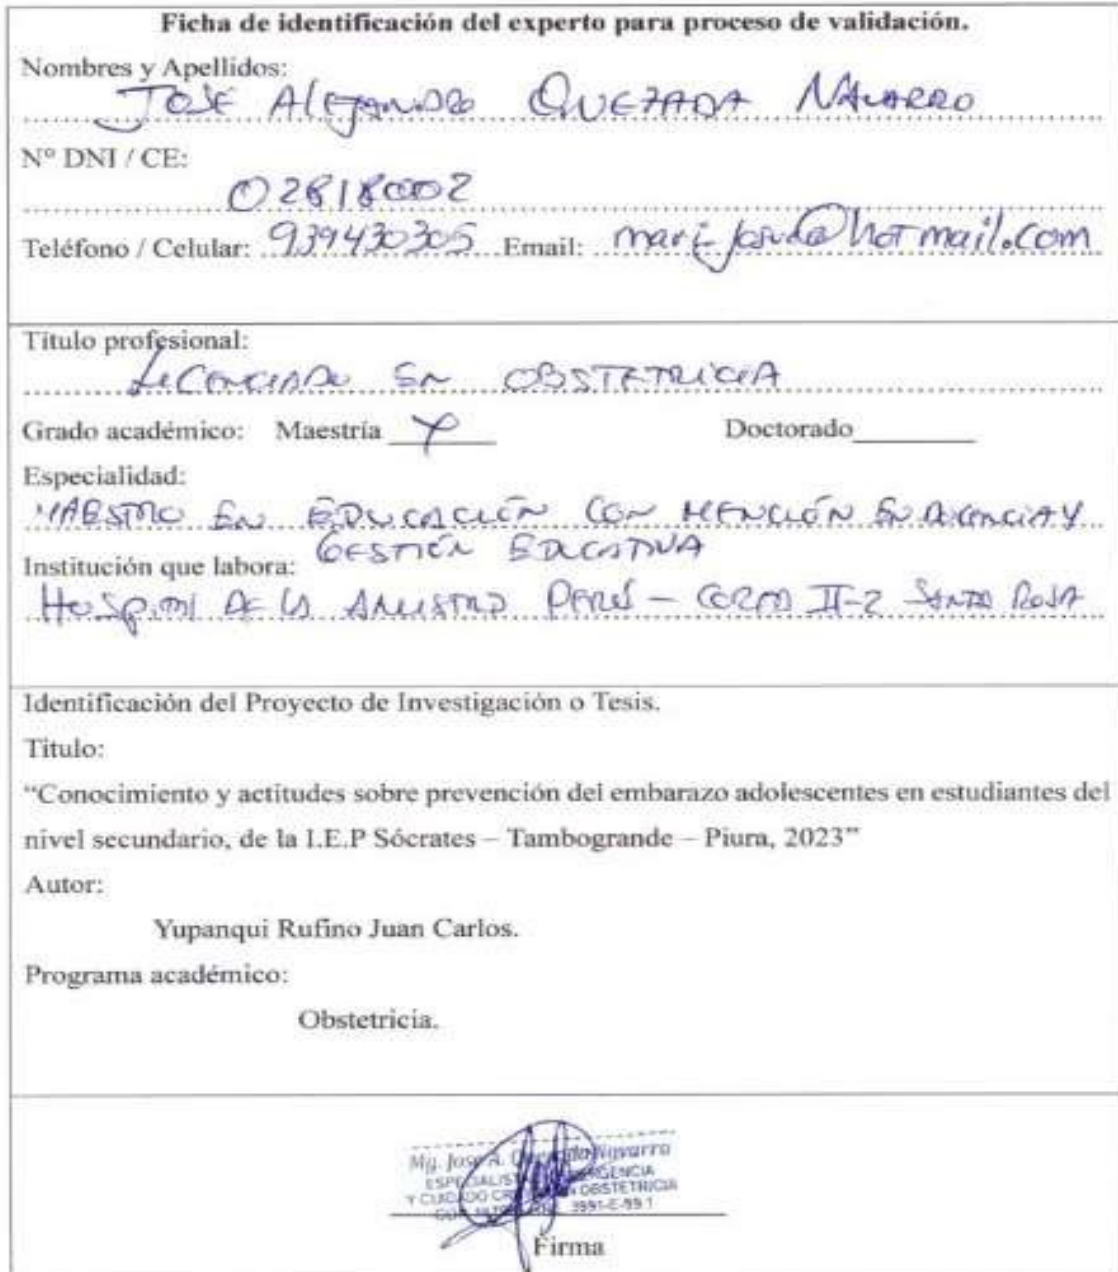 Ficha de identificación del experto para proceso de validación.
Nombres y Apellidos:
JOSE Alejandro QUEZADA NAVARRO
N° DNI / CE:
02818002
Teléfono / Celular: 939430305 Email: @hotmail.com
Título profesional:
LICENCIADO EN OBSTETRICIA
Grado académico: Maestría X Doctorado
Especialidad:
MAESTRO EN EDUCACIÓN CON MENCIÓN EN DOCENCIA Y
GESTIÓN EDUCATIVA
Institución que labora:
Hospital DE LA AMISTAD PERÚ – COREA II-2 SANTA ROSA
Identificación del Proyecto de Investigación o Tesis.
Titulo:
“Conocimiento y actitudes sobre prevención del embarazo adolescentes en estudiantes del
nivel secundario, de la I.E.P Sócrates – Tambogrande – Piura, 2023”
Autor:
Yupanqui Rufino Juan Carlos.
Programa académico:
Obstetricia.
Mg. Jose A. Navarro
Y CUIDADO OBSTETRICIA
3991-E-99.1
Firma